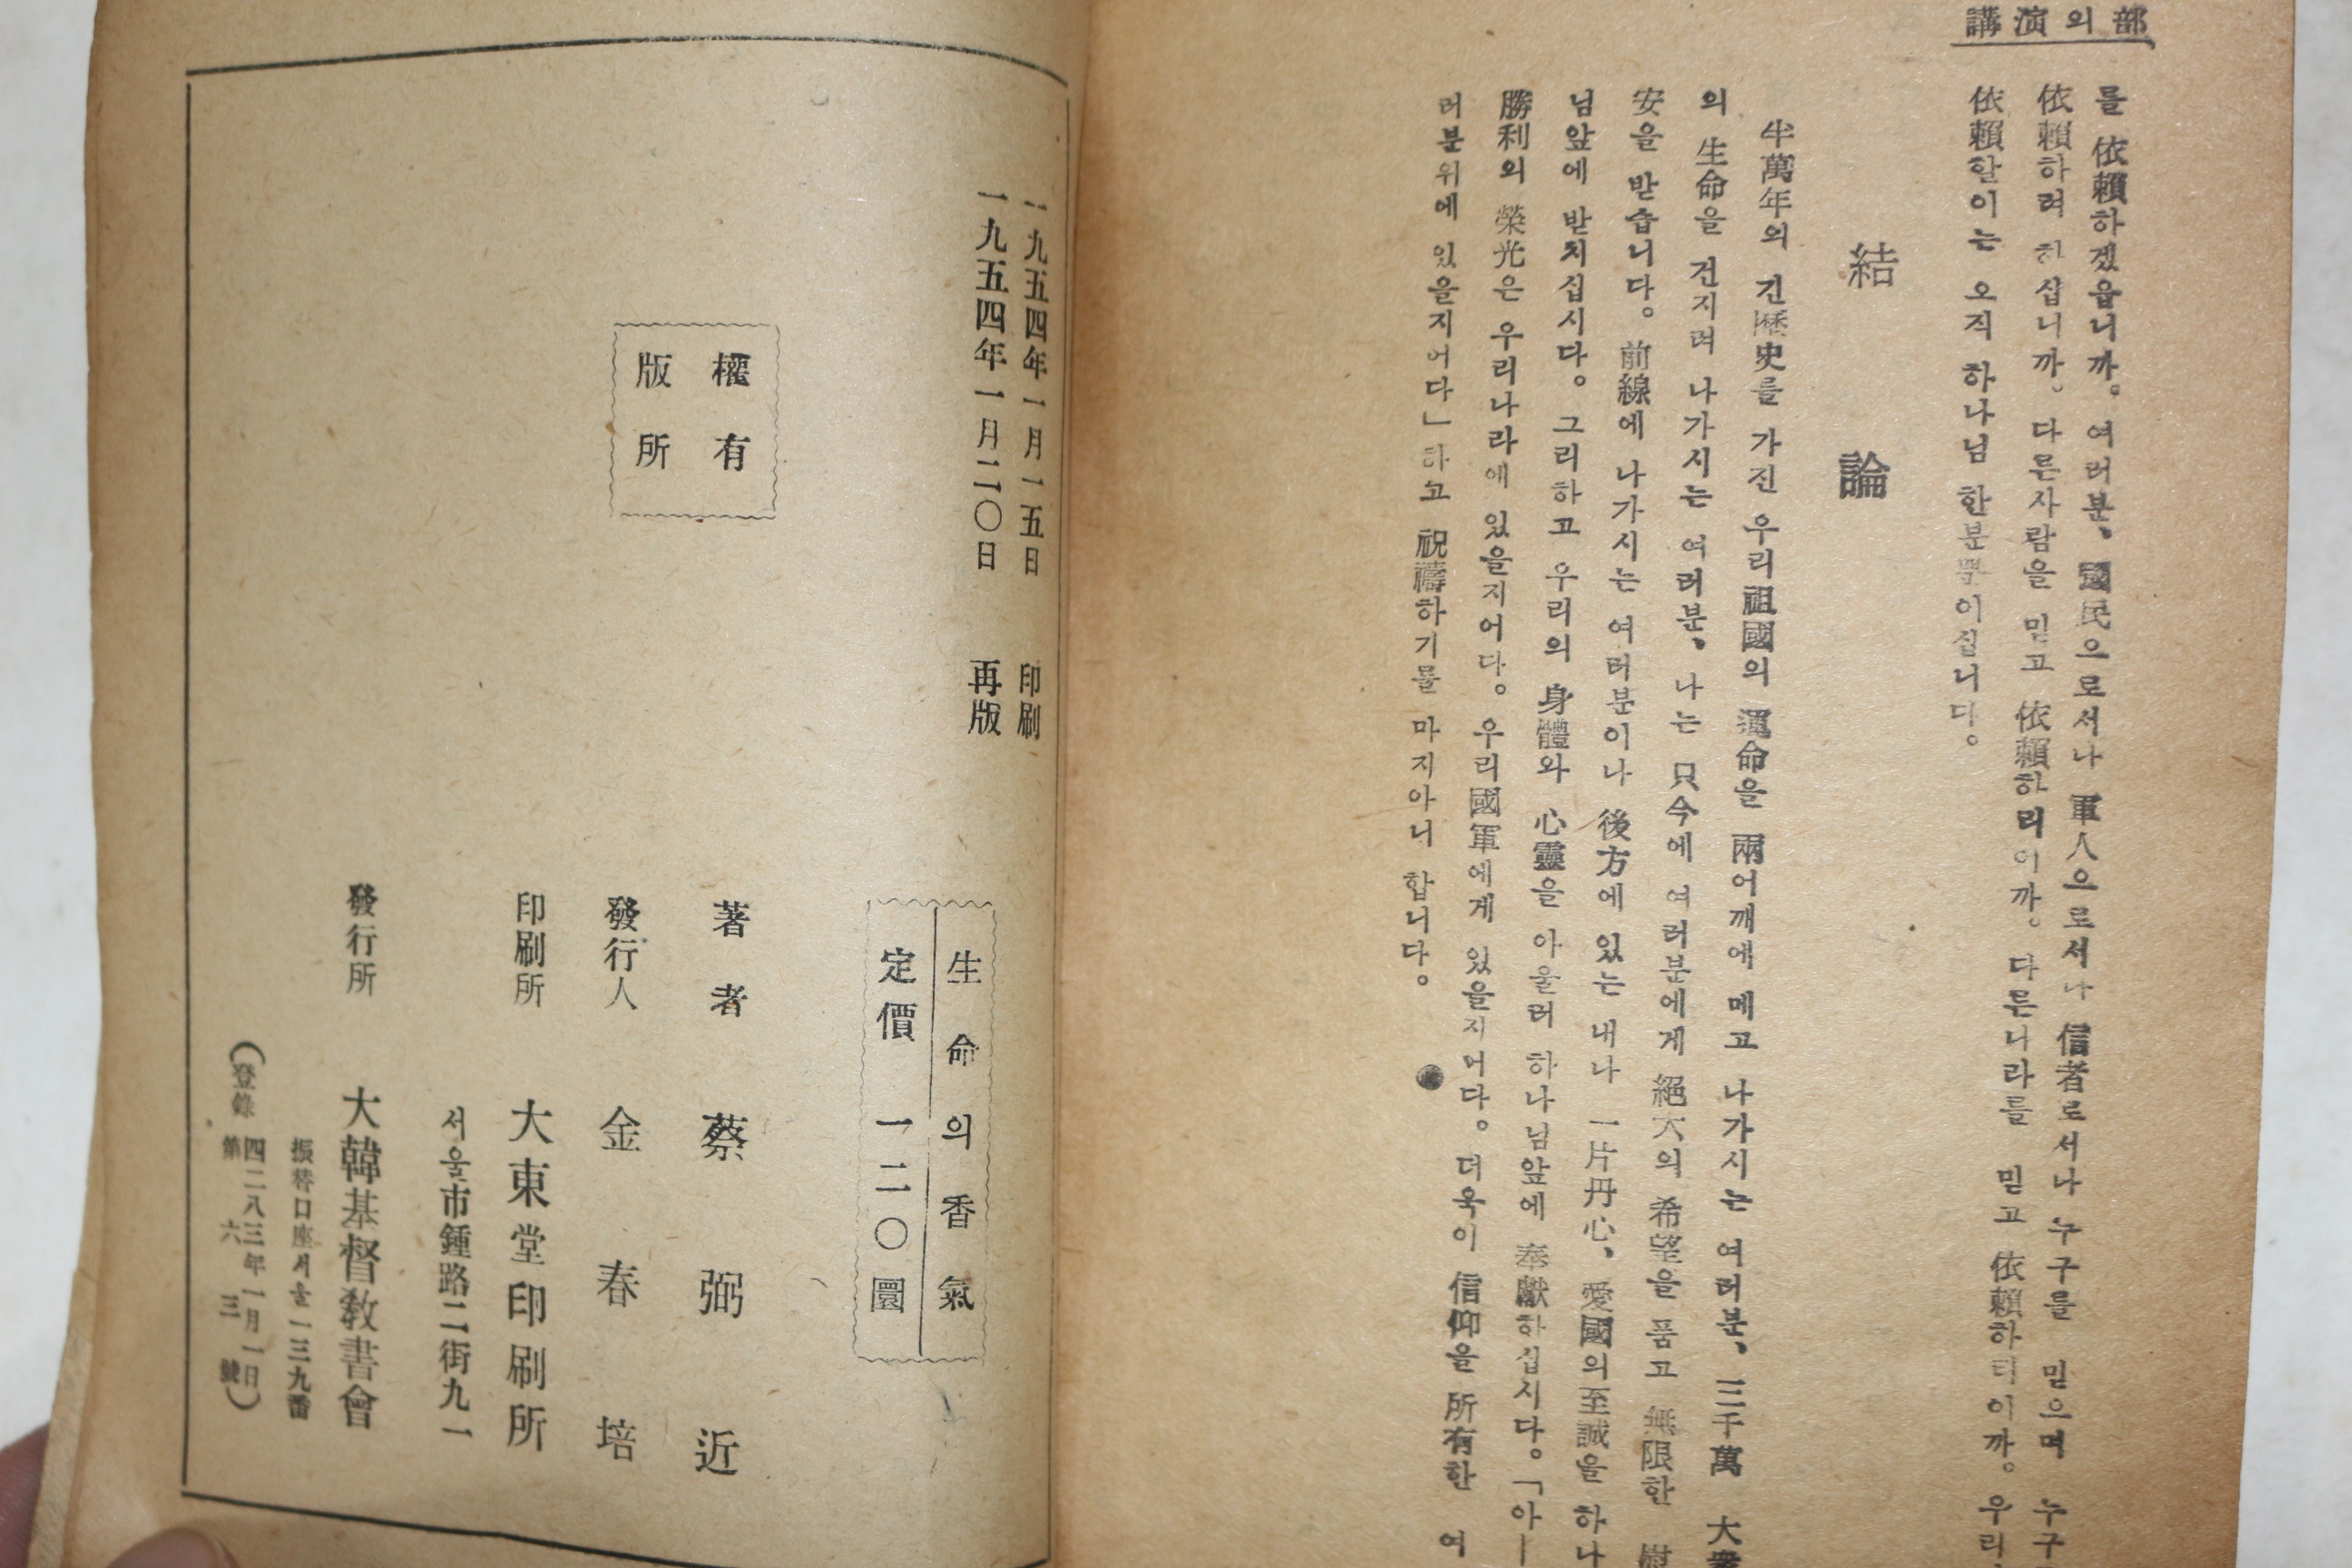 講演의部
를 依賴하겠읍니까。 여러분、 國民으로서나 軍人으로서나 信者로서나 누구를 믿으며 누구
依賴하려 하십니까。 다른사람을 믿고 依賴하리이까。 다른나라를 믿고 依賴하리이까。 우리
依賴할이는 오직 하나님 한분뿐이십니다。
結論
半萬年의 긴歷史를 가진 우리祖國의 運命을 兩어깨에 메고 나가시는 여러분、 三千萬 大衆
의 生命을 건지려 나가시는 여러분、 나는 只今에 여러분에게 絕大의 希望을 품고 無限한 慰
安을 받습니다。 前線에 나가시는 여러분이나 後方에 있는 내나 一片丹心、 愛國의至誠을 하나
님앞에 받치십시다。 그리하고 우리의 身體와 心靈을 아울러 하나님앞에 奉獻하십시다。「아―
勝利의 榮光은 우리나라에 있을지어다。 우리國軍에게 있을지어다。 더욱이 信仰을 所有한 여
러분위에 있을지어다」하고 祝禱하기를 마지아니 합니다。
一九五四年一月一五日 印刷
一九五四年一月二〇日 再版
生命의香氣
定價 一二〇圜
權有
版所
著者 蔡弼近
發行人 金春培
印刷所 大東堂印刷所
서울市鍾路二街九一
發行所 大韓基督敎書會
振替口座서울一三九番
(登錄 四二八三年一月一日
第六三號)